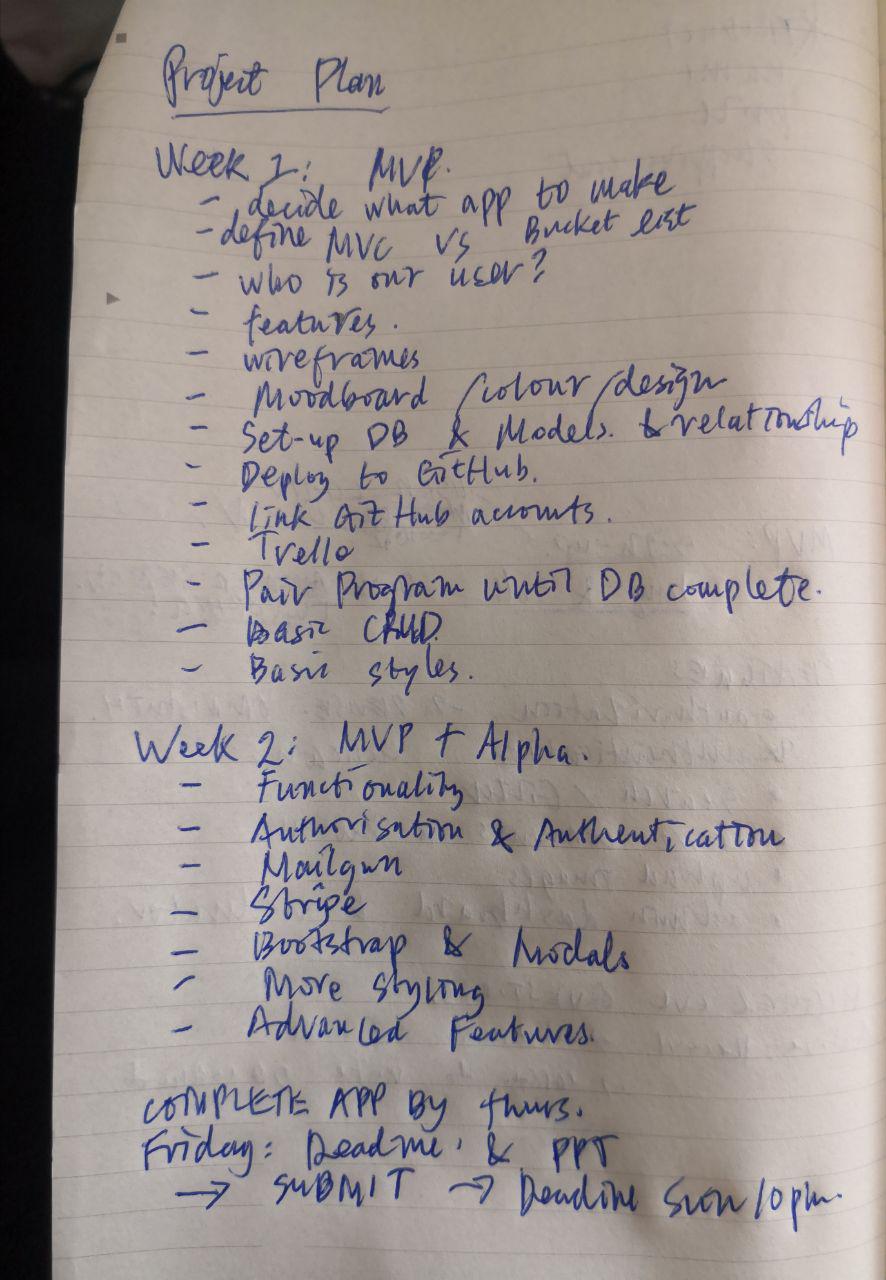 Project Plan
Week 1: MVP.
- decide what app to make
- define MVC vs Bucket list
- who is our user?
- features.
- wireframes
- Moodboard /colour/design
- Set-up DB & Models. & relationship
- Deploy to GitHub.
- Link GitHub accounts.
- Trello
- Pair Program until DB complete.
- Basic CRUD.
- Basic styles.
Week 2: MVP + Alpha.
- Functionality
- Authorisation & Authentication
- Mailgun
- Stripe
- Bootstrap & Modals
- More styling
- Advanced Features.
COMPLETE APP BY thurs.
Friday: Readme, & PPT
→ SUBMIT → Deadline Sun 10pm.